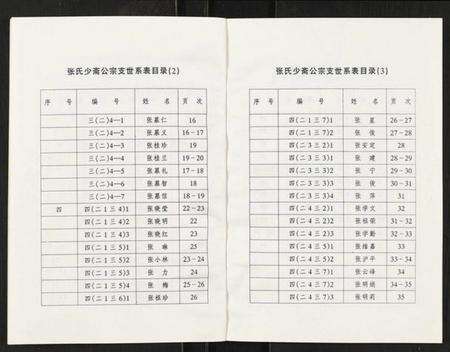 张氏少斋公宗支世系表目录(2)
序 号 编 号 姓 名 页 次
三(二)4—1 张慕仁 16
三(二)4—2 张慕义 16-17
三(二)4—3 张桂珍 19
三(二)4—4 张桂兰 19-20
三(二)4—5 张慕礼 17-18
三(二)4—6 张慕智 18
三(二)4—7 张慕信 18-19
四 四(二1三4)1 张晓莹 22-23
四(二1三4)2 张晓明 22
四(二1三4)3 张晓红 23
四(二1三5)1 张 琳 25
四(二1三5)2 张小林 23-24
四(二1三5)3 张 力 24
四(二1三5)4 张 梅 25-26
四(二1三6)1 张桂珍 26
张氏少斋公宗支世系表目录(3)
序 号 编 号 姓 名 页 次
四(二1三7)1 张 星 26-27
四(二1三7)2 张 俊 27-28
四(二3三2)1 张安定 28
四(二3三3)1 张 建 28-29
四(二3三3)2 张 宁 29-30
四(二3三3)3 张 俊 30-31
四(二3三3)4 张 萍 31
四(二4三2)1 张学文 32
四(二4三2)2 张祖荣 31-32
四(二4三2)3 张学勤 32-33
四(二4三5)1 张维嘉 33
四(二4三5)2 张沪平 33-34
四(二4三7)1 张云峰 34
四(二4三7)2 张明娟 34-35
四(二4三7)3 张明莉 35